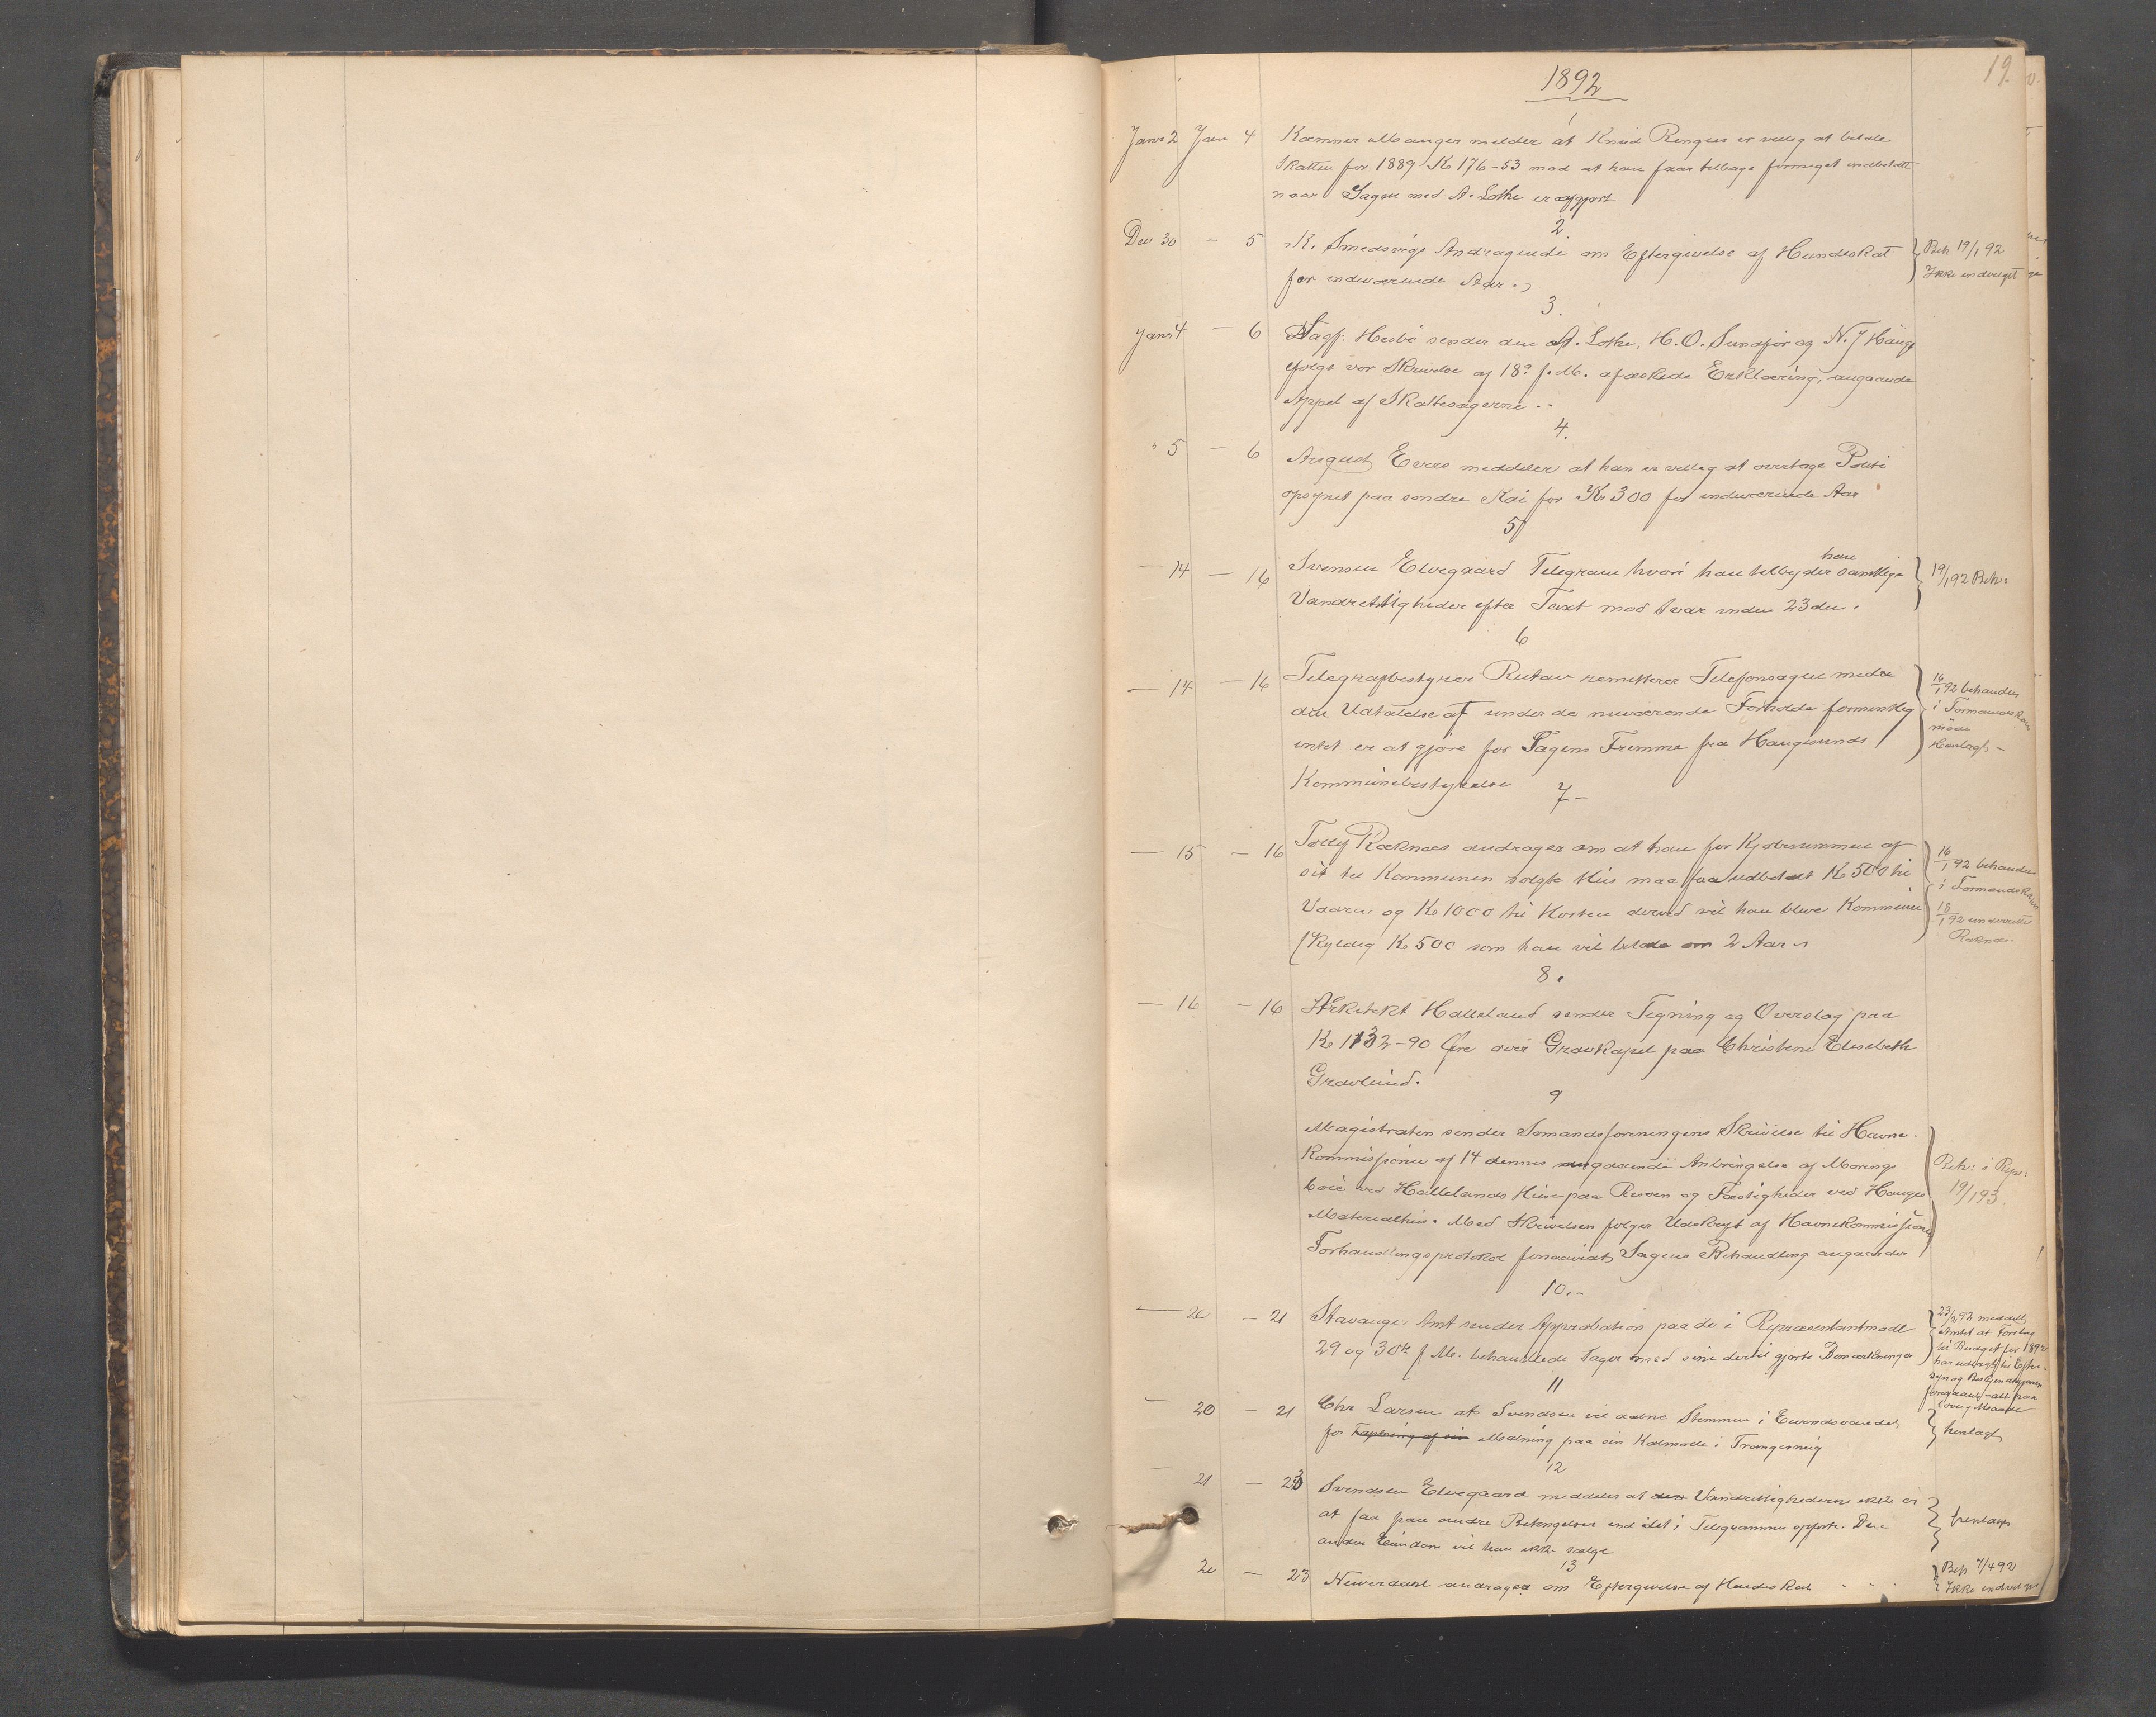 19.
1892
1
Janr 2 Jan 4 Kæmner Mauanger melder at Knud Ringen er villig at betale
Skatten for 1889 Kr 176-53 mod at han faar tilbage formeget indbetalt
naar Sagen med A. Lothe er afgjort
2.
Dec 30 — 5 K. Smedsvigs Andragende om Eftergivelse af Hundeskat
for indeværende Aar.
Beh 19/1 92
Ikke indvilget
3.
Janr 4 — 6 Sagf. Hesbö sender den A. Lothe, H. O. Sundfør og N. J Hauge
ifølge vor Skrivelse af 18de f. M. afæskede Erklæring, angaaende
Appel af Skattesagerne.
4.
" 5 — 6 August Evers meddeler at han er villig at overtage Politi
opsynet paa søndre Kai for Kr 300 for indeværende Aar
5
— 14 — 16 Svensen Elvegaard Telegram hvori han tilbyder han samtlige
Vandrettigheder efter Taxt mod Svar inden 23de.
19/1 92 Beh:
6
— 14 — 16 Telegrafbestyrer Rutau remitterer Telefonsagen med
den Udtalelse at under de nuværende Forholde formentlig
intet er at gjøre for Sagens Fremme fra Haugesunds
Kommunebestyrelse
16/1 92 behandlet
i Formandskabs
møde
Henlagt -
7-
— 15 — 16 Tolly Røknæs andrager om at han for Kjøbesummen af
sit til Kommunen solgte Hus maa faa udbetalt Kr 500 til
Vaaren og Kr 1000 til Høsten derved vil han blive Kommunen
skyldig Kr 500 som han vil betale om 2 Aar
16/1 92 behandlet
i Formandskabet
18/1 92 underrettet
Røknæs.
8.
— 16 — 16 Arkitekt Halleland sender Tegning og Overslag paa
Kr 1132-90 Øre over Gravkapel paa Christine Elisabeth
Gravlund.
9
Magistraten sender Sømandsforeningens Skrivelse til Havne-
kommissionen af 14 dennes angaaende Anbringelse af Morings
boie ved Hallelands Huse paa Risøen og Fæstigheder ved Hauges
Materialhus. Med Skrivelsen følger Udskrift af Havnekommissjonens
Forhandlingsprotokol forsaavidt Sagens Behandling angaaende
Beh: i Repr:
19/1 93.
10.-
— 20 — 21 Stavanger Amt sender Approbation paa de i Repræsentantmøde
29 og 30te f. M. behandlede Sager med sine dertil gjorte Bemærkninger
23/1 92 meddelt
Amtet at Forslag
til Budget for 1892
har udlagt til Efter-
syn og
foregaaet - alt paa
lovlig Maade
11
— 20 — 21 Chr Larsen af Svendsen vil aabne Stemmen i Eivindsvandet
for Tapning af sin Malning paa sin Kolmølle i Trangesnig
henlagt
12
— 21 — 23 Svendsen Elvegaard meddeles at den Vandrettighederne ikke er
at faa paa andre Betingelser end det i Telegrammet opførte. Den
anden Eiendom vil han ikke sælge
henlagt
13
21 — 23 Neverdahl andrager om Eftergivelse af Hundeskat
Beh 7/4 92
Ikke indvilget